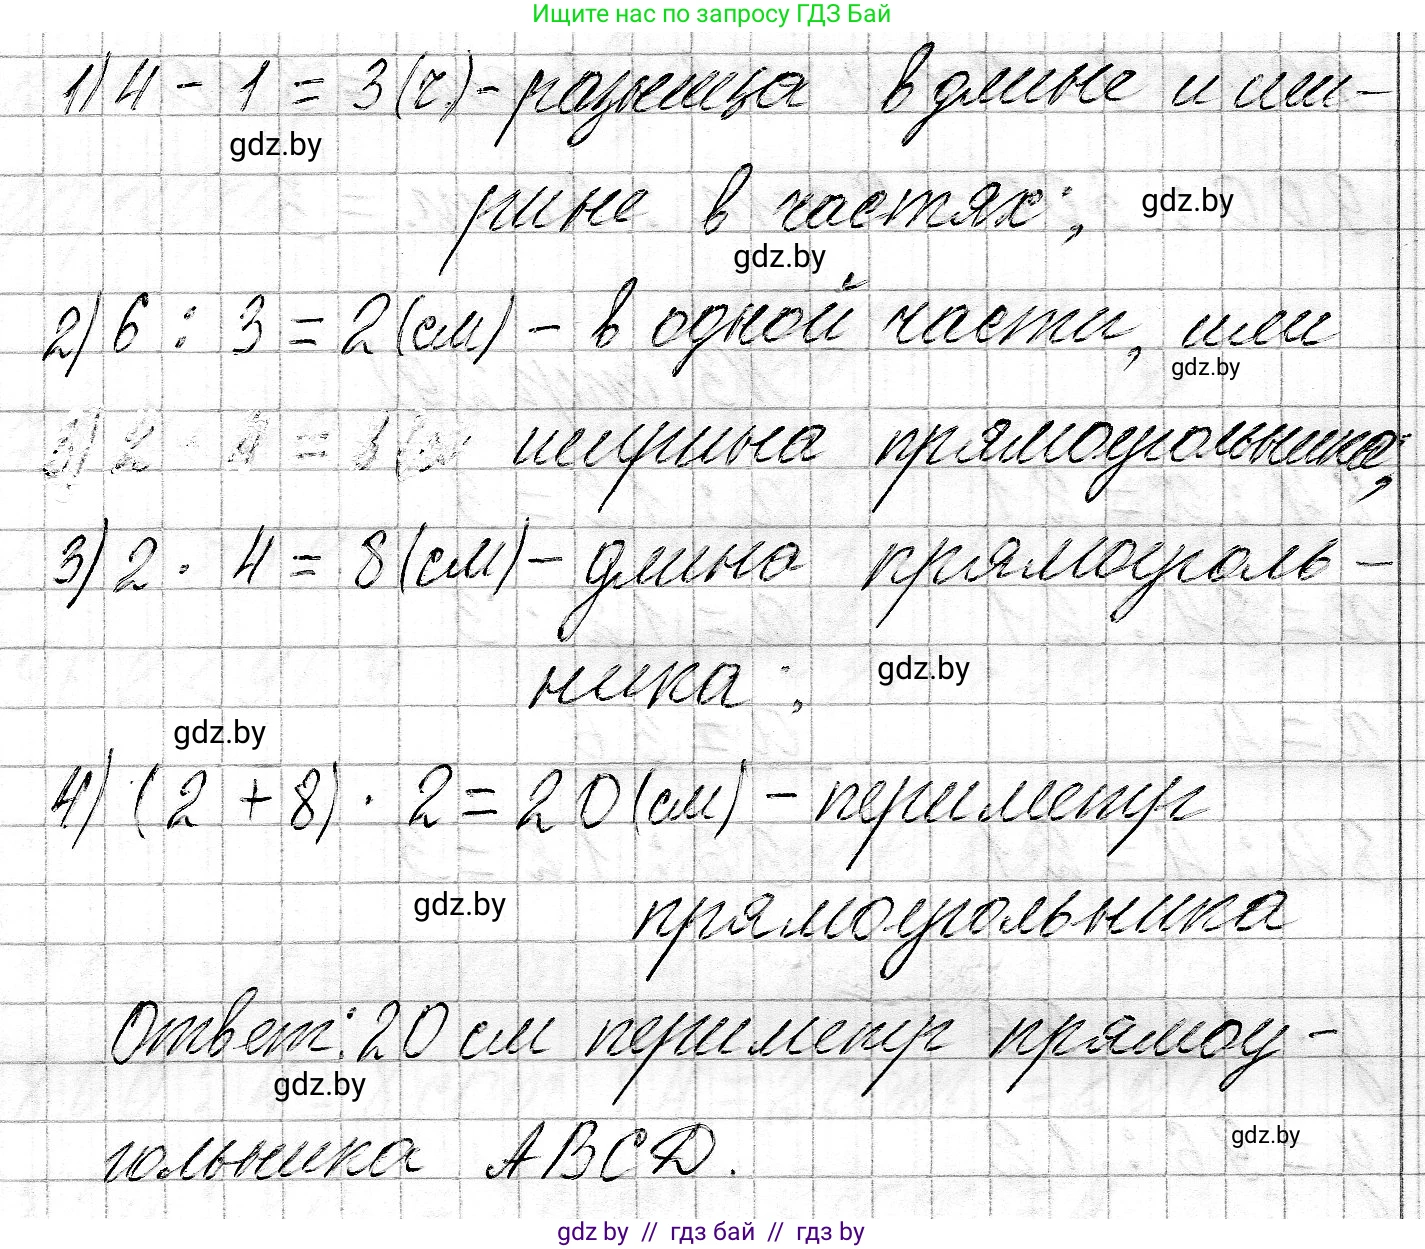 Ищите нас по запросу ГДЗ Бай
1) 4 - 1 = 3 (ч.) - разница в длине и ши-
gdz.by
рине в частях; gdz.by
gdz.by
2) 6 : 3 = 2 (см) - в одной части, или
gdz.by
3) 2 · 4 = 8 (см ширина прямоугольника;
3) 2 · 4 = 8 (см) - длина прямоуголь-
ника; gdz.by
gdz.by
4) (2 + 8) · 2 = 20 (см) - периметр
gdz.by
прямоугольника
Ответ: 20 см периметр прямоу-
gdz.by
гольника ABCD.
gdz.by
gdz by // гдз бай // гдз by